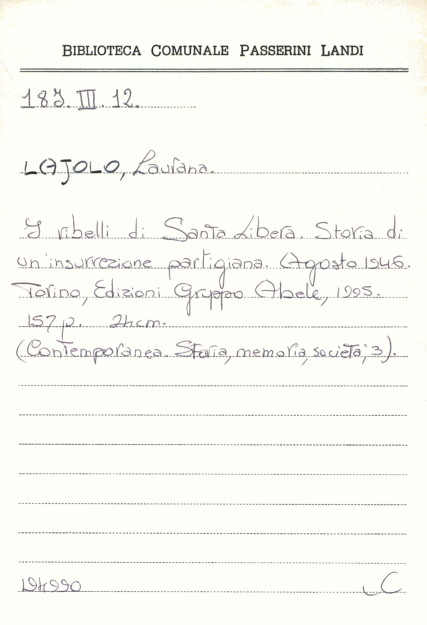 BIBLIOTECA COMUNALE PASSERINI LANDI
187. III. 12.
LAJOLO, Laurana.
I ribelli di Santa Libera. Storia di
un'insurrezione partigiana. (Agosto 1946.
Torino, Edizioni Gruppo Abele, 1995.
157 p. 24 cm.
(Contemporanea. Storia, memoria, società; 3).
194990
C